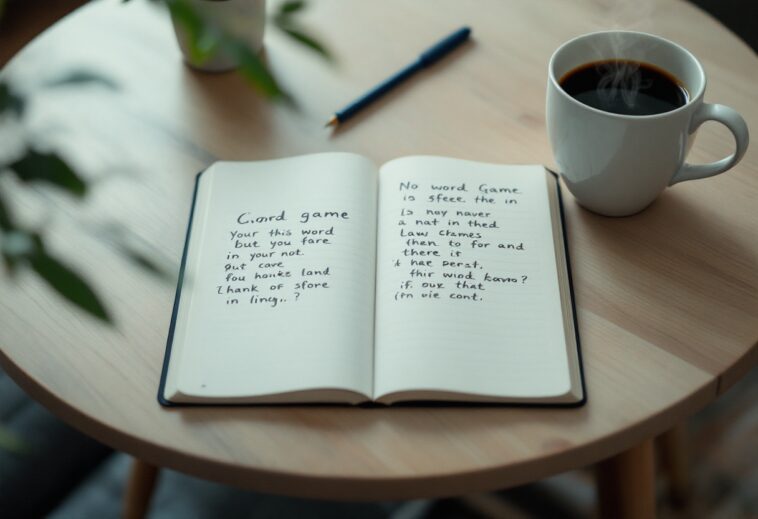 Cord game
Your this word
but you fare
in your not.
Out care
fou honke land
Thank of sfore
in lingı.. ?
No word Game
is sfeee the in
Is noy naver
a nat in thed
Law Chames
then to for and
there if
it hae perst.
thir wiod kavro?
if. our that
in vie cont.